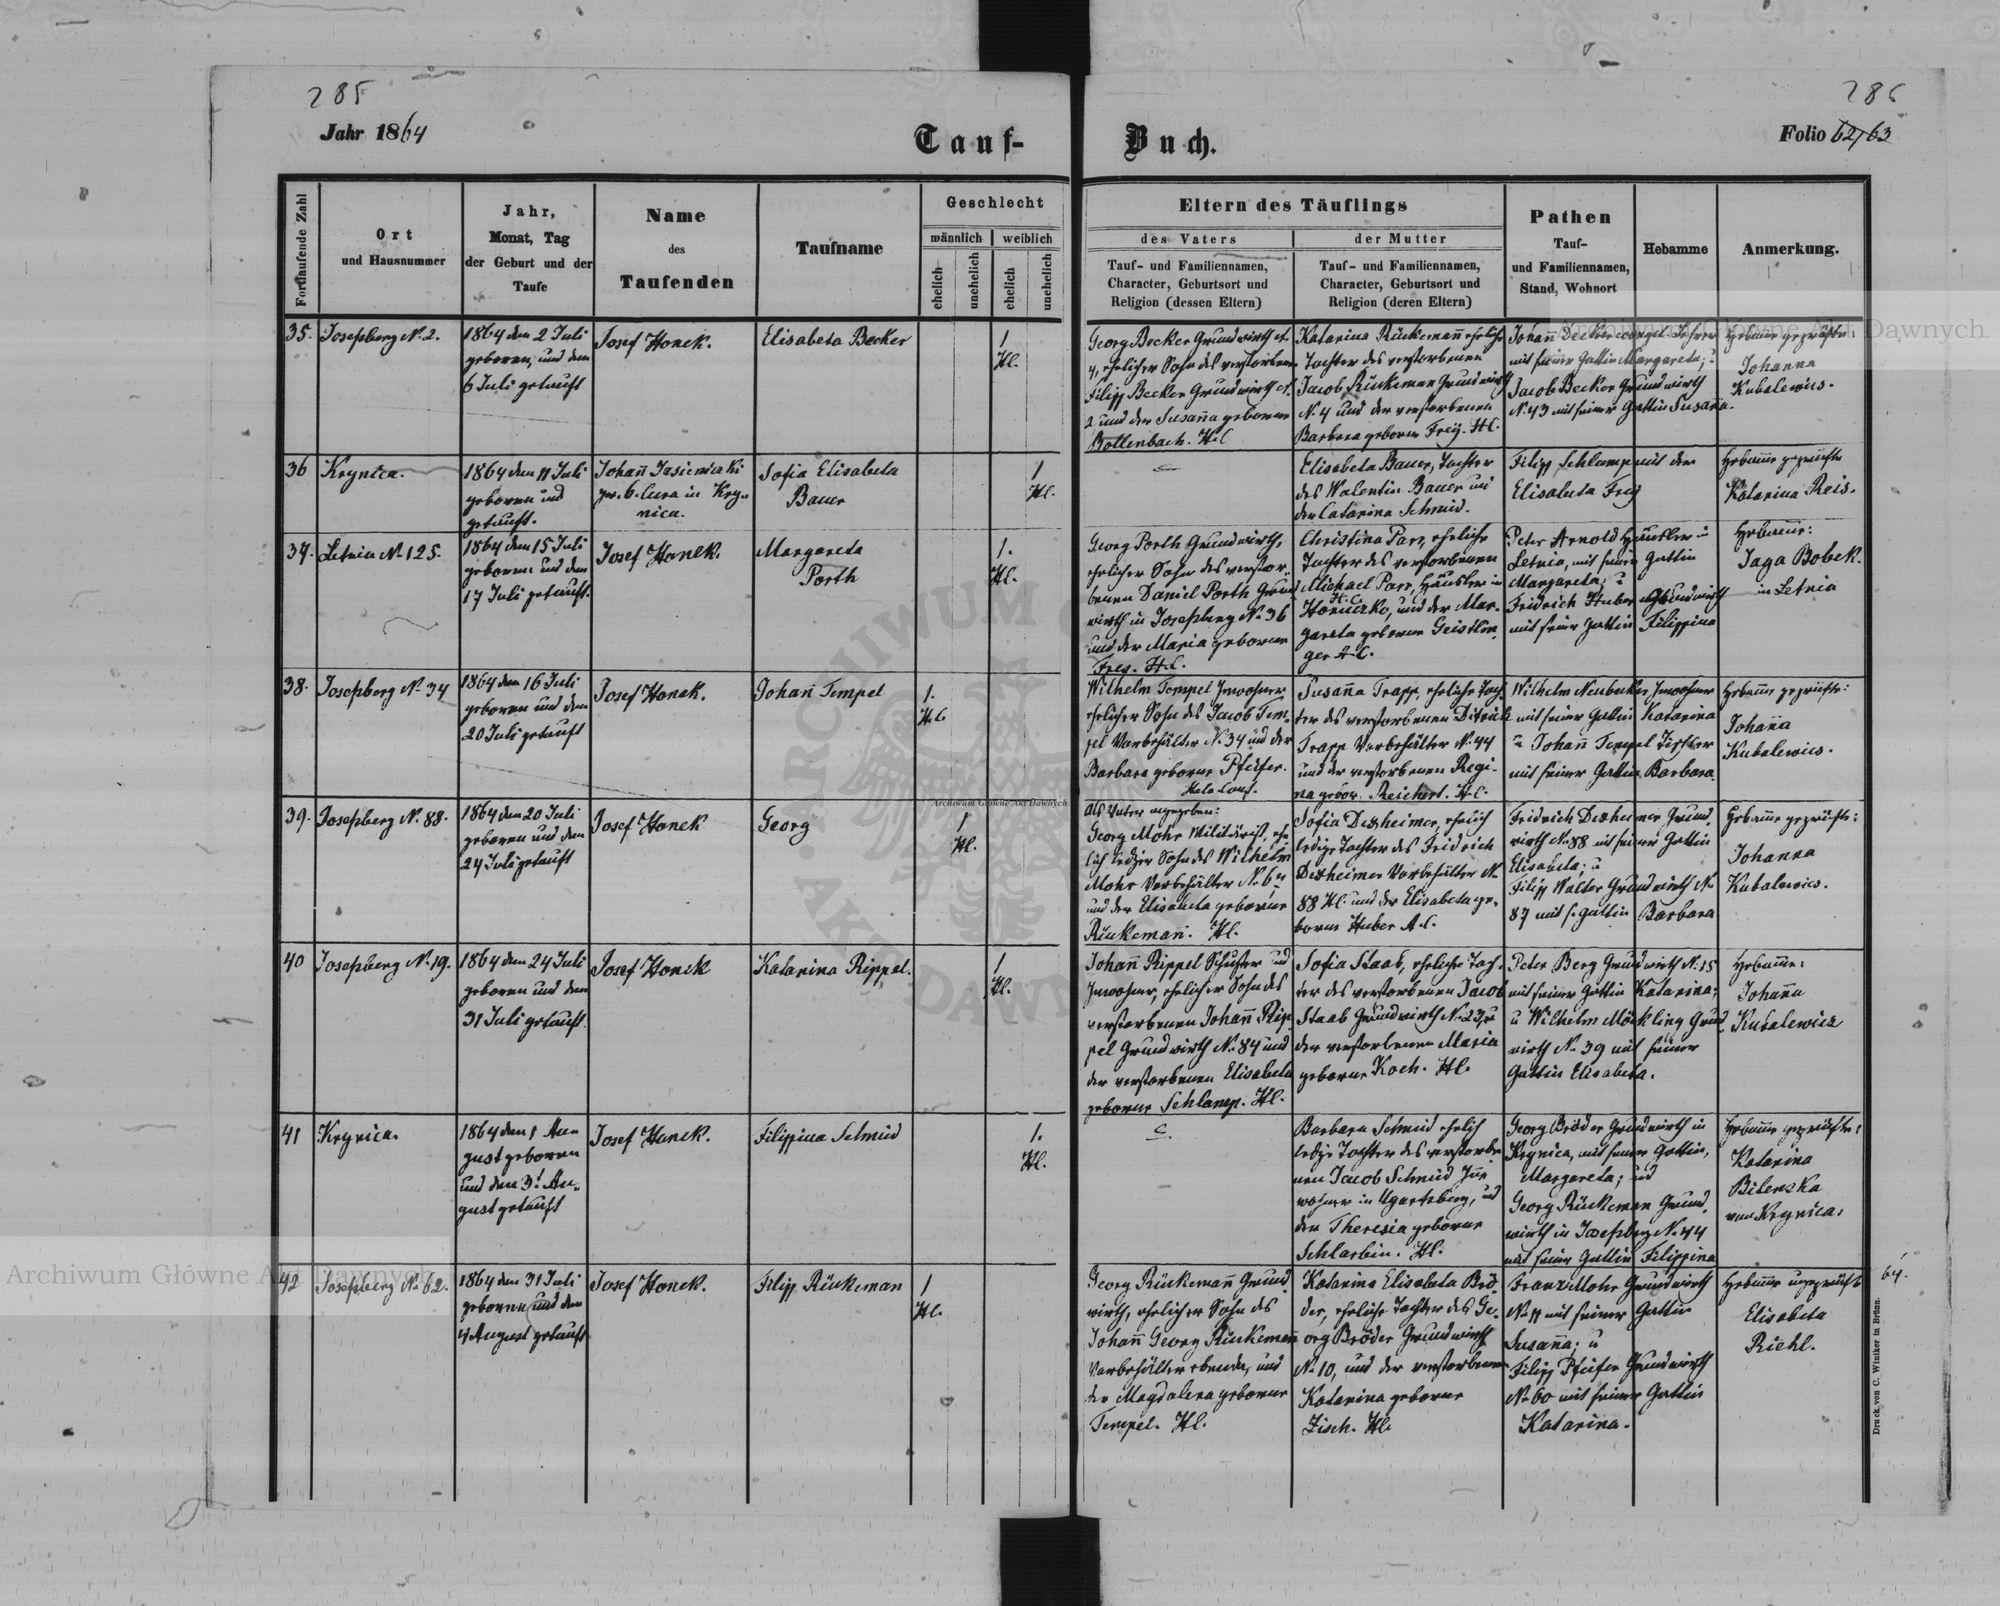 285
286
Jahr 1864
Tauf-
Buch.
Folio 62/63
Fortlaufende Zahl
Ort
und Hausnummer
Jahr,
Monat, Tag
der Geburt und der
Taufe
Name
des
Taufenden
Taufname
Geschlecht
männlich
weiblich
ehelich
unehelich
ehelich
unehelich
Eltern des Täuflings
des Vaters
der Mutter
Tauf- und Familiennamen,
Character, Geburtsort und
Religion (dessen Eltern)
Tauf- und Familiennamen,
Character, Geburtsort und
Religion (deren Eltern)
Pathen
Tauf-
und Familiennamen,
Stand, Wohnort
Hebamme
Anmerkung.
35.
Josefsberg N. 2.
1864 den 2 Juli
geboren, und den
6 Juli getauft
Josef Honek.
Elisabeta Becker
1
Hl.
Georg Becker Grundwirth
4, ehelicher Sohn des verstorbenen
Filipp Becker Grundwirth
2 und der Susaña geborene
Bollenbach. H.C
Katarina Rückemañ eheliche
Tochter des verstorbenen
Jacob Rückeman Grundwirth
N. 4 und der verstorbenen
Barbara geborne Freÿ. H.C.
Johañ Decker evangel. Lehrer
mit seiner Gattin Margareta; ü
Jacob Becker Grundwirth
N. 43 mit seiner Gattin Susaña.
Hebame geprüfte
Johanna
Kubalewics.
36
Krynica.
1864 den 11 Juli
geboren und
getauft.
Johañ Jasiewicki
gr. c. Cura in Kry-
nica.
Sofia Elisabeta
Bauer
1
Hl.
Elisabeta Bauer, Tochter
des Walentin Bauer und
der Catarina Schmid.
Filipp Schlamp mit der
Elisabeta Frey
Hebame geprüfte
Katarina Reis.
37.
Letnia N. 125.
1864 den 15 Juli
geboren und den
17 Juli getauft.
Josef Honek.
Margareta
Porth
1.
Hl.
Georg Porth Grundwirth,
ehelicher Sohn des verstor-
benen Daniel Porth Grund
wirth in Josefsberg N. 36
und der Maria geborene
Frey. H.C.
Christina Parr, eheliche
Tochter des verstorbenen
Michael Parr, Häusler in
H.C.
Horucko, und der Mar-
gareta geborne Geistlin-
ger A.C.
Peter Arnold Häusler in
Letnia, mit seiner Gattin
Margareta; ü
Fridrich Huber Grundwirth
mit seiner Gattin Filippina
Hebame:
Jaga Bobek.
in Letnia
38.
Josefsberg N. 34
1864 den 16 Juli
geboren und den
20 Juli getauft
Josef Honek.
Johañ Tempel
1.
H.C
Wilhelm Tempel Inwohner
ehelicher Sohn des Jacob Tem-
pel Vorbehälter N. 34 und der
Barbara geborne Pfeifer.
Helv. Conf.
Susaña Trapp, eheliche Toch-
ter des verstorbenen
Trapp Vorbehälter N. 44
und der verstorbenen Regi-
na gebor. Reichert. H.C.
Wilhelm Neubecker Inwohner
mit seiner Gattin Katarina
ü Johañ Tempel Tischler
mit seiner Gattin Barbara.
Hebame geprüfte:
Johaña
Kubalewics.
39.
Josefsberg N. 88.
1864 den 20 Juli
geboren und den
24 Juli getauft
Josef Honek
Georg
1
Hl.
Als Vater angegeben:
Georg Mohr Militärist, ehe-
lich lediger Sohn des Wilhelm
Mohr Vorbehälter N. 6
und der Elisabeta geborne
Rückeman. Hl.
Sofia Dexheimer, ehelich
ledige Tochter des Fridrich
Dexheimer Vorbehälter N.
88 Hl. und der Elisabeta ge-
borne Huber A.C.
Fridrich Dexheimer Grund-
wirth N. 88 mit seiner Gattin
Elisabeta; ü
Filipp Walter Grundwirth N.
87 mit s. Gattin Barbara
Hebame geprüfte:
Johanna
Kubalewics.
40
Josefsberg N. 19.
1864 den 24 Juli
geboren und den
31 Juli getauft.
Josef Honek
Katarina Rippel.
1
Hl.
Johañ Rippel Schuster und
Inwohner, ehelicher Sohn des
verstorbenen Johañ Rip-
pel Grundwirth N. 84 und
der verstorbenen Elisabeta
geborne Schlamp. Hl.
Sofia Staab, eheliche Toch-
ter des verstorbenen Jacob
Staab Grundwirth N. 23, ü
der verstorbenen Maria
geborne Koch. Hl.
Peter Berg Grundwirth N. 15
mit seiner Gattin Katarina;
ü Wilhelm Möckling Grund-
wirth N. 39 mit seiner
Gattin Elisabeta.
Hebame:
Johaña
Kubalewicz
41
Krynica.
1864 den 1 Au-
gust geboren
und den 3. Au-
gust getauft
Josef Honek.
Filippina Schmid
1.
Hl.
Barbara Schmid ehelich
ledige Tochter des verstorbe-
nen Jacob Schmid In-
wohner in Ugartsberg, und
der Theresia geborne
Schlarbin. Hl.
Georg Bröder Grundwirth in
Krynica, mit seiner Gattin,
Margareta; und
Georg Rückeman Grund-
wirth in Josefsberg N. 44
mit seiner Gattin Filippina
Hebame geprüfte:
Katarina
Bilenska
von Krynica.
42
Josefsberg N. 62.
1864 den 31 Juli
geboren und den
4 August getauft
Josef Honek.
Filipp Rückeman
1
Hl.
Georg Rückemañ Grund-
wirth, ehelicher Sohn des
Johañ Georg Rückemañ
Vorbehälter ebenda, und
der Magdalena geborne
Tempel. Hl.
Katarina Elisabeta Brö-
der, eheliche Tochter des Ge-
org Bröder Grundwirth
N. 10, und der verstorbenen
Katarina geborne
Zisch. Hl.
Franz Mohr Grundwirth
N. 11 mit seiner Gattin
Susaña; ü
Filipp Pfeifer Grundwirth
N. 60 mit seiner Gattin
Katarina.
Hebame ungeprüft
Elisabeta
Riehl.
64.
Druck von C. Winiker in Brünn.
Archiwum Główne Akt Dawnych
Archiwum Główne Akt Dawnych
Archiwum Główne Akt Dawnych